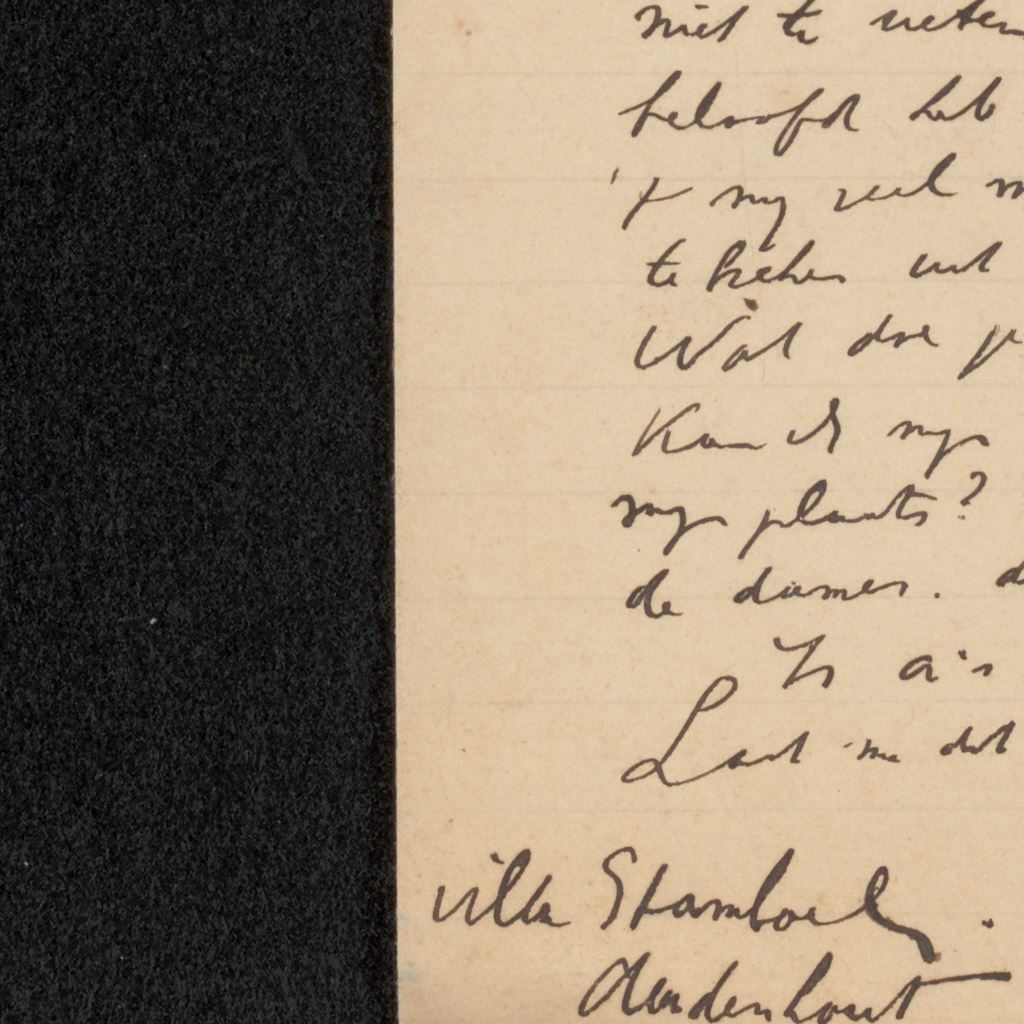 niet te weten
beloofd heb
't my veel m
te trekken uit
Wat doe je
Kan ik myn
myn plaats?
de dames. d
Is a
Laat me dat
villa Stamboel.
Aerdenhout